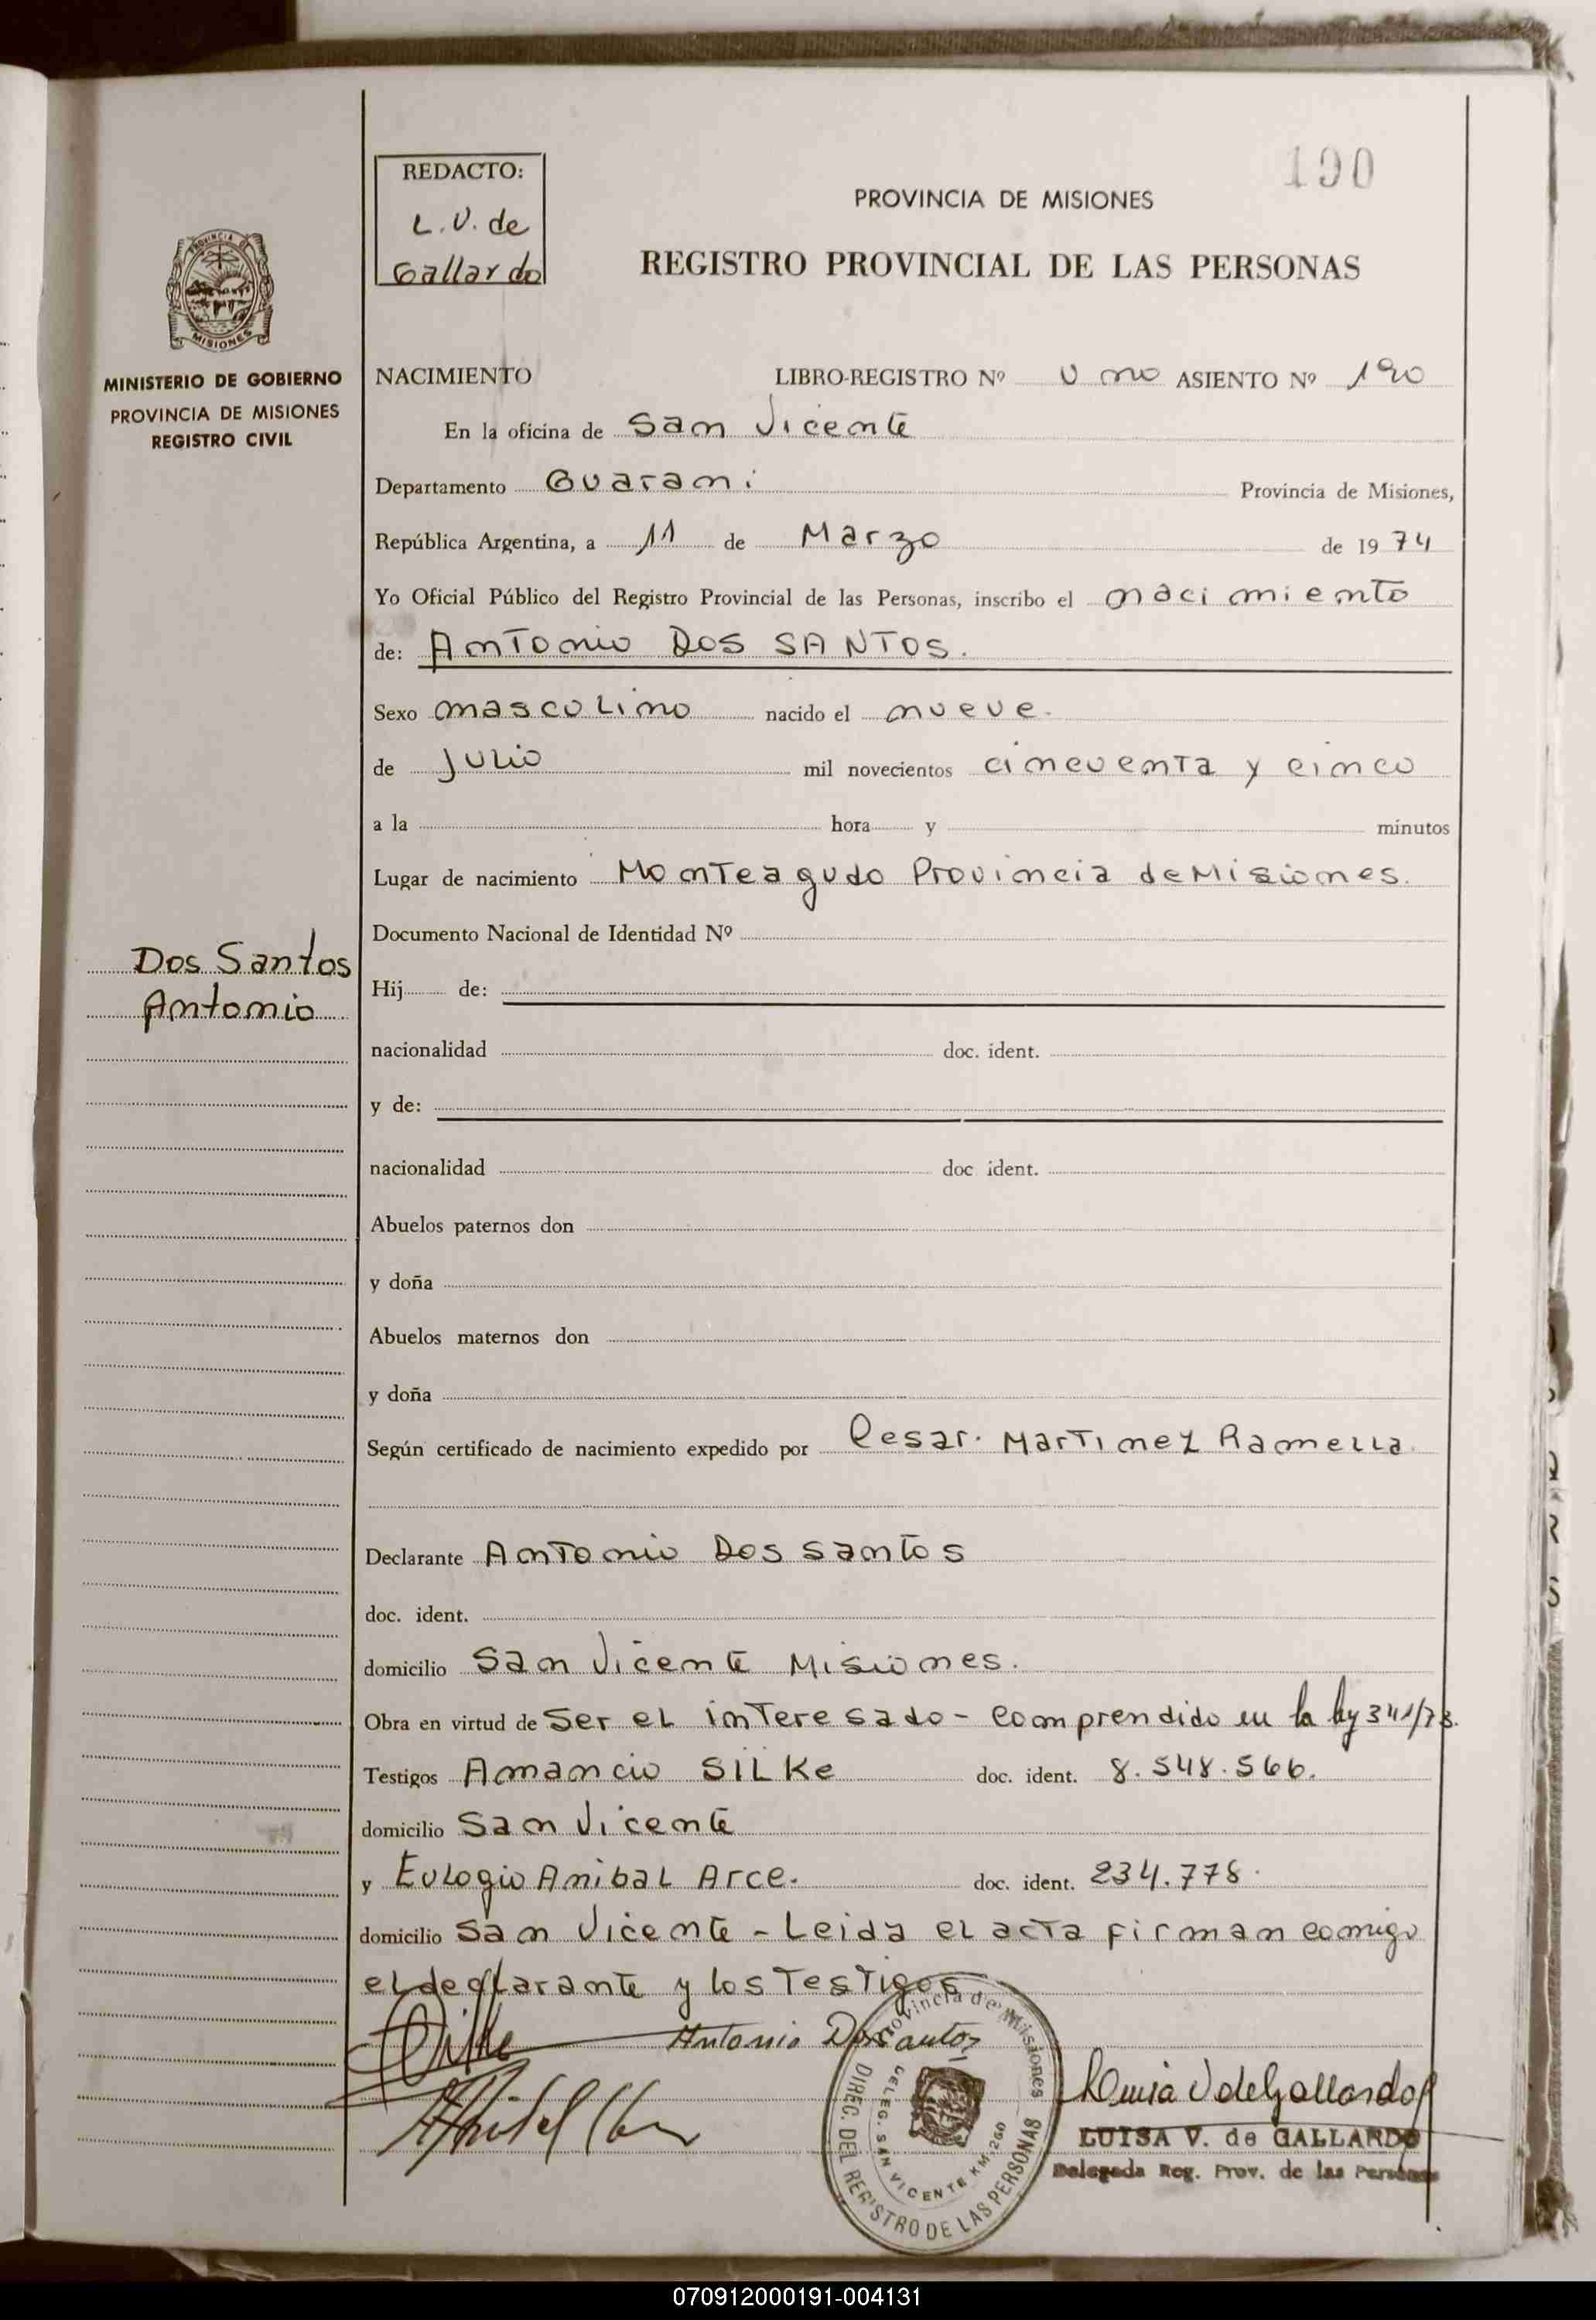 190
REDACTO:
L.V. de
Gallardo
PROVINCIA DE MISIONES
REGISTRO PROVINCIAL DE LAS PERSONAS
PROVINCIA DE
MISIONES
MINISTERIO DE GOBIERNO
PROVINCIA DE MISIONES
REGISTRO CIVIL
Dos Santos
Antonio
NACIMIENTO LIBRO-REGISTRO Nº Uno ASIENTO Nº 190
En la oficina de San Vicente
Departamento Guarani Provincia de Misiones,
República Argentina, a 11 de Marzo de 1974
Yo Oficial Público del Registro Provincial de las Personas, inscribo el nacimiento
de: Antonio DOS SANTOS.
Sexo masculino nacido el nueve.
de Julio mil novecientos cincuenta y cinco
a la hora y minutos
Lugar de nacimiento Monteagudo Provincia de Misiones.
Documento Nacional de Identidad Nº
Hij de:
nacionalidad doc. ident.
y de:
nacionalidad doc ident.
Abuelos paternos don
y doña
Abuelos maternos don
y doña
Según certificado de nacimiento expedido por Cesar. Martinez Ramella.
Declarante Antonio Dos santos
doc. ident.
domicilio San Vicente Misiones.
Obra en virtud de ser el interesado - comprendido en la ley 341/73.
Testigos Amancio SILKe doc. ident. 8.548.566.
domicilio San Vicente
y Eulogio Anibal Arce. doc. ident. 234.778.
domicilio San Vicente - Leida el acta firman comigo
el declarante y los Testigos
Silke Antonio Dos santos
Provincia de Misiones
DIREC. DEL REGISTRO DE LAS PERSONAS
DELEG. SAN VICENTE KM.260
Luisa V de Gallardo
LUISA V. de GALLARDO
Delegada Reg. Prov. de las Personas
070912000191-004131